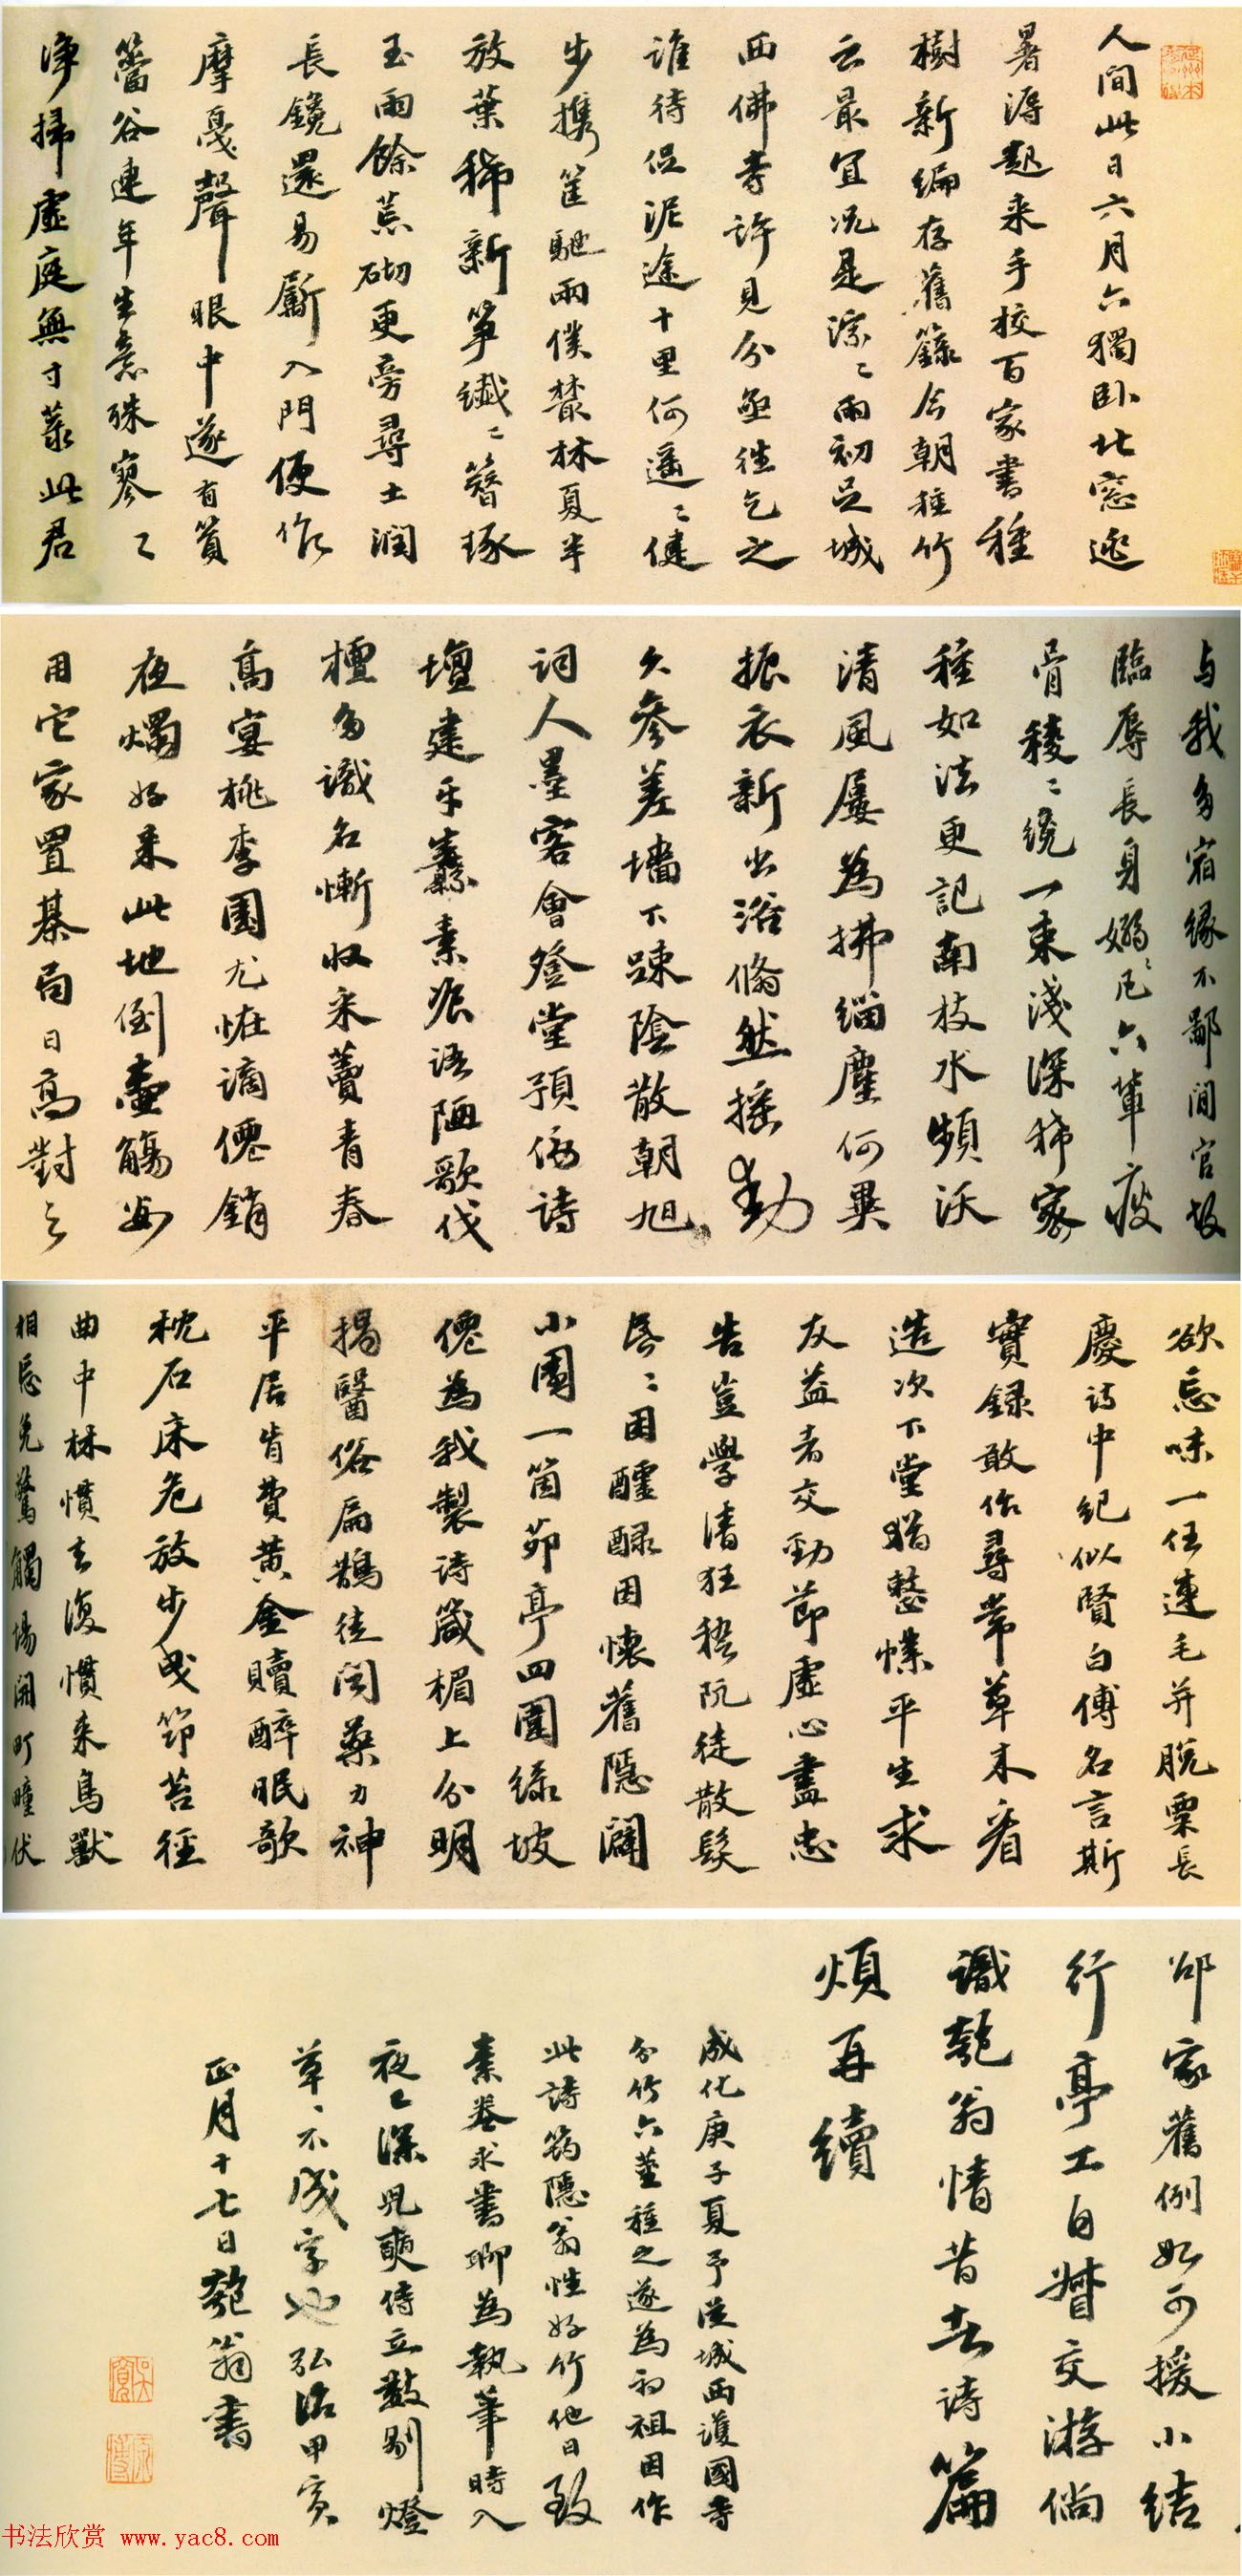 人間此日六月六獨卧北窓逃
暑溽起来手挍百家書種
樹新編存舊錄今朝種竹
云最宜况是深〻雨初足城
西佛寺許見分亟往乞之
誰待促泥途十里何遥〻健
步攜筐馳兩僕叢林夏半
放葉稀新筍纖〻簪琢
玉雨餘荒砌更旁尋土潤
長鑱還易斸入門便作
摩戛聲眼中遂有篔
簹谷連年生意殊寥〻
淨掃虛庭無寸菉此君
与我多宿緣不鄙閒官故
臨辱長身嫋〻凡六輩瘦
骨稜〻繞一束淺深稀密
種如法更記南枝水頻沃
清風屢為拂緇塵何異
振衣新出浴翛然搖動
久參差墻下踈陰散朝旭
詞人墨客會登堂預俻詩
壇建牙纛素飱語陋歌伐
檀多識名慚收采藚青春
髙宴桃李園尤恠謫僊銷
夜燭好来此地倒壺觴安
用它家置棊局日高對之
欲忘味一任連毛并脫粟長
慶詩中紀似賢白傅名言斯
實錄敢作尋常草木看
造次下堂猶整幞平生求
友益者交勁節虛心盡忠
告豈學清狂嵇阮徒散髮
昏〻困醽醁因懷舊隱闢
小園一箇茆亭四圍綠坡
僊為我製詩箴楣上分明
揭醫俗扁鵲徒閱藥力神
平居肯費黄金贖醉眠歌
枕石床危放步曳笻苔徑
曲中林慣去復慣来鳥獸
相忘免驚觸場開町疃伏
邵家舊例如可援小結
行亭工自督交游倘
識匏翁情昔去詩篇
煩再續
成化庚子夏予從城西護國寺
分竹六莖種之遂為初祖因作
此詩筠隱翁性好竹他日致
素卷求書聊為執筆時入
夜已深兒奭侍立數剔燈
草〻不成字也弘治甲寅
正月十七日匏翁書
吳寬
原博
书法欣赏 www.yac8.com